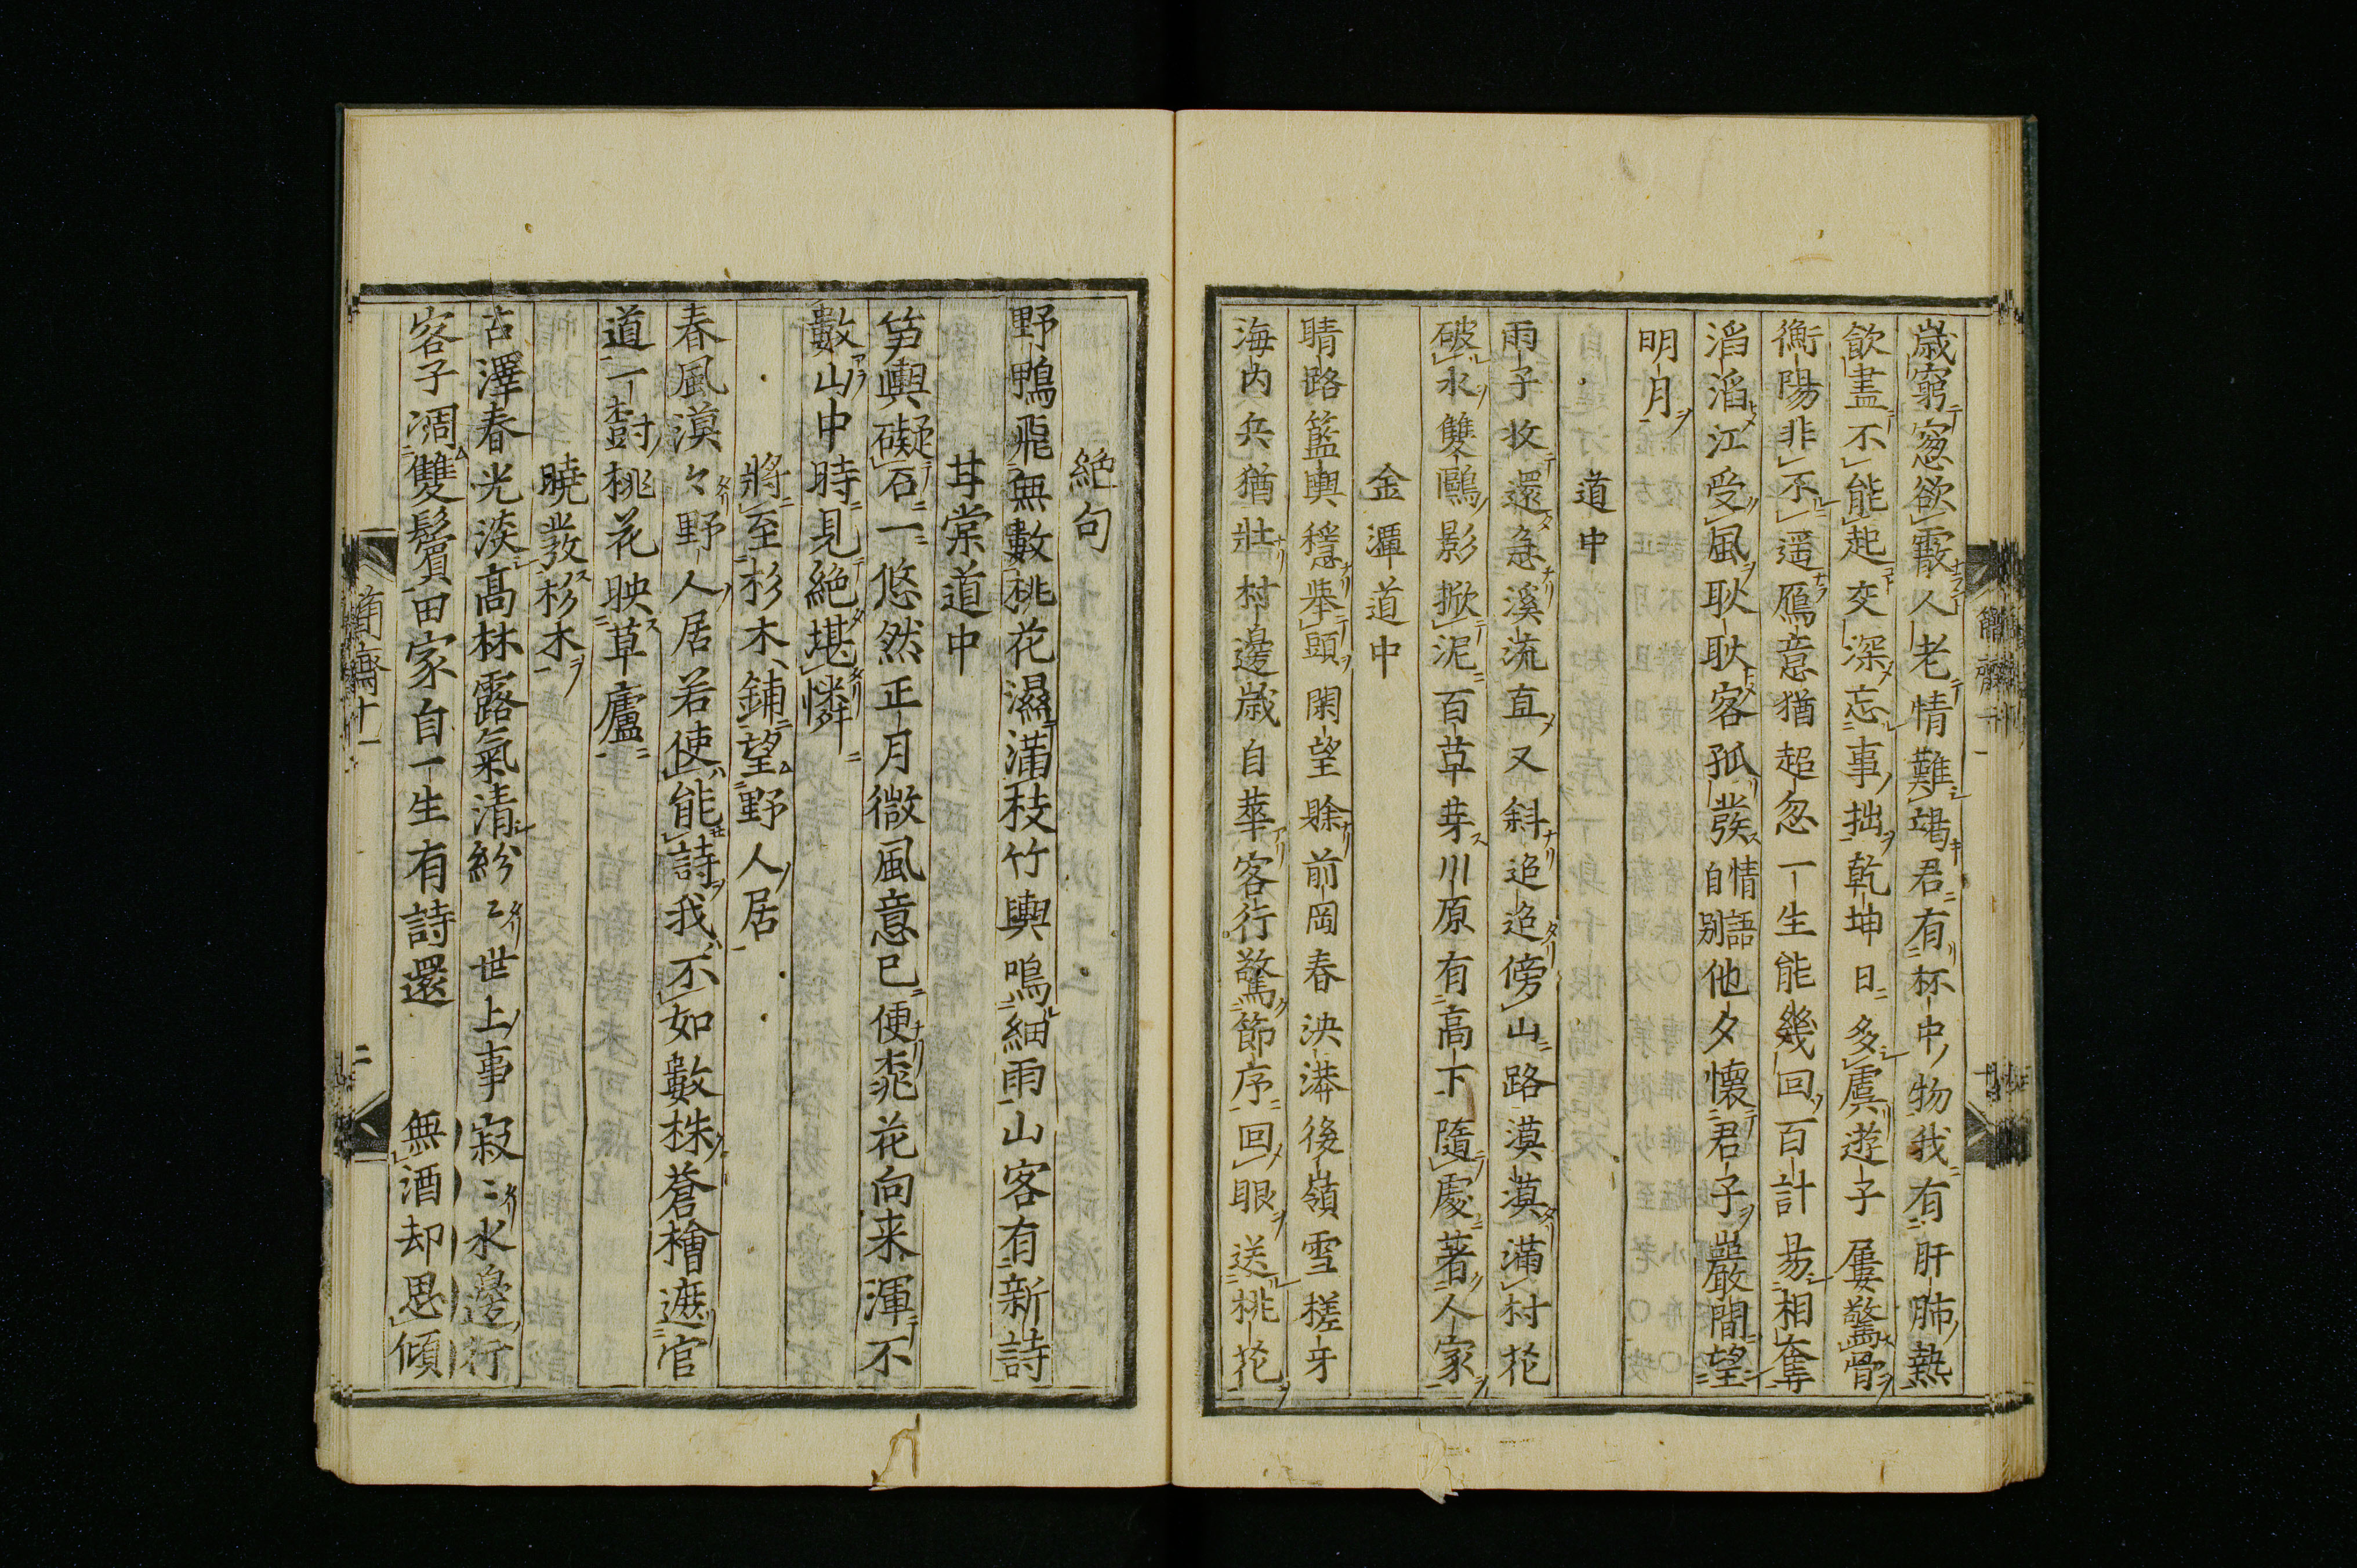 歳窮窓欲霰人老情難竭君有杯中物我有肝肺熱
飲盡不能起交深忘事拙乾坤日多虞遊子屢驚骨
衡陽非不遥鴈意猶超忽一生能幾回百計易相奪
滔滔江受風耿耿客孤發情語自別他夕懷君子巖間望
明月
道中
雨子收還急溪流直又斜迨迨傍山路漠漠滿村花
破水雙鷗影掀泥百草芽川原有高下隨處著人家
金潭道中
晴路籃輿穩舉頭閑望賒前岡春泱漭後嶺雪槎牙
海内兵猶壯村邊歳自華客行驚節序回眼送桃花
絶句
野鴨飛無數桃花濕滿枝竹輿鳴細雨山客有新詩
甘棠道中
筍輿礙石一悠然正月微風意已便桃花向来渾不
數山中時見絶堪憐
將至杉木鋪望野人居
春風漠々野人居若使能詩我不如數株蒼檜遮官
道一樹桃花映草廬
曉發杉木
古澤春光淡高林露氣清紛々世上事寂々水邊行
客子凋雙鬢田家自一生有詩還 無酒却思傾
簡齋十一 二